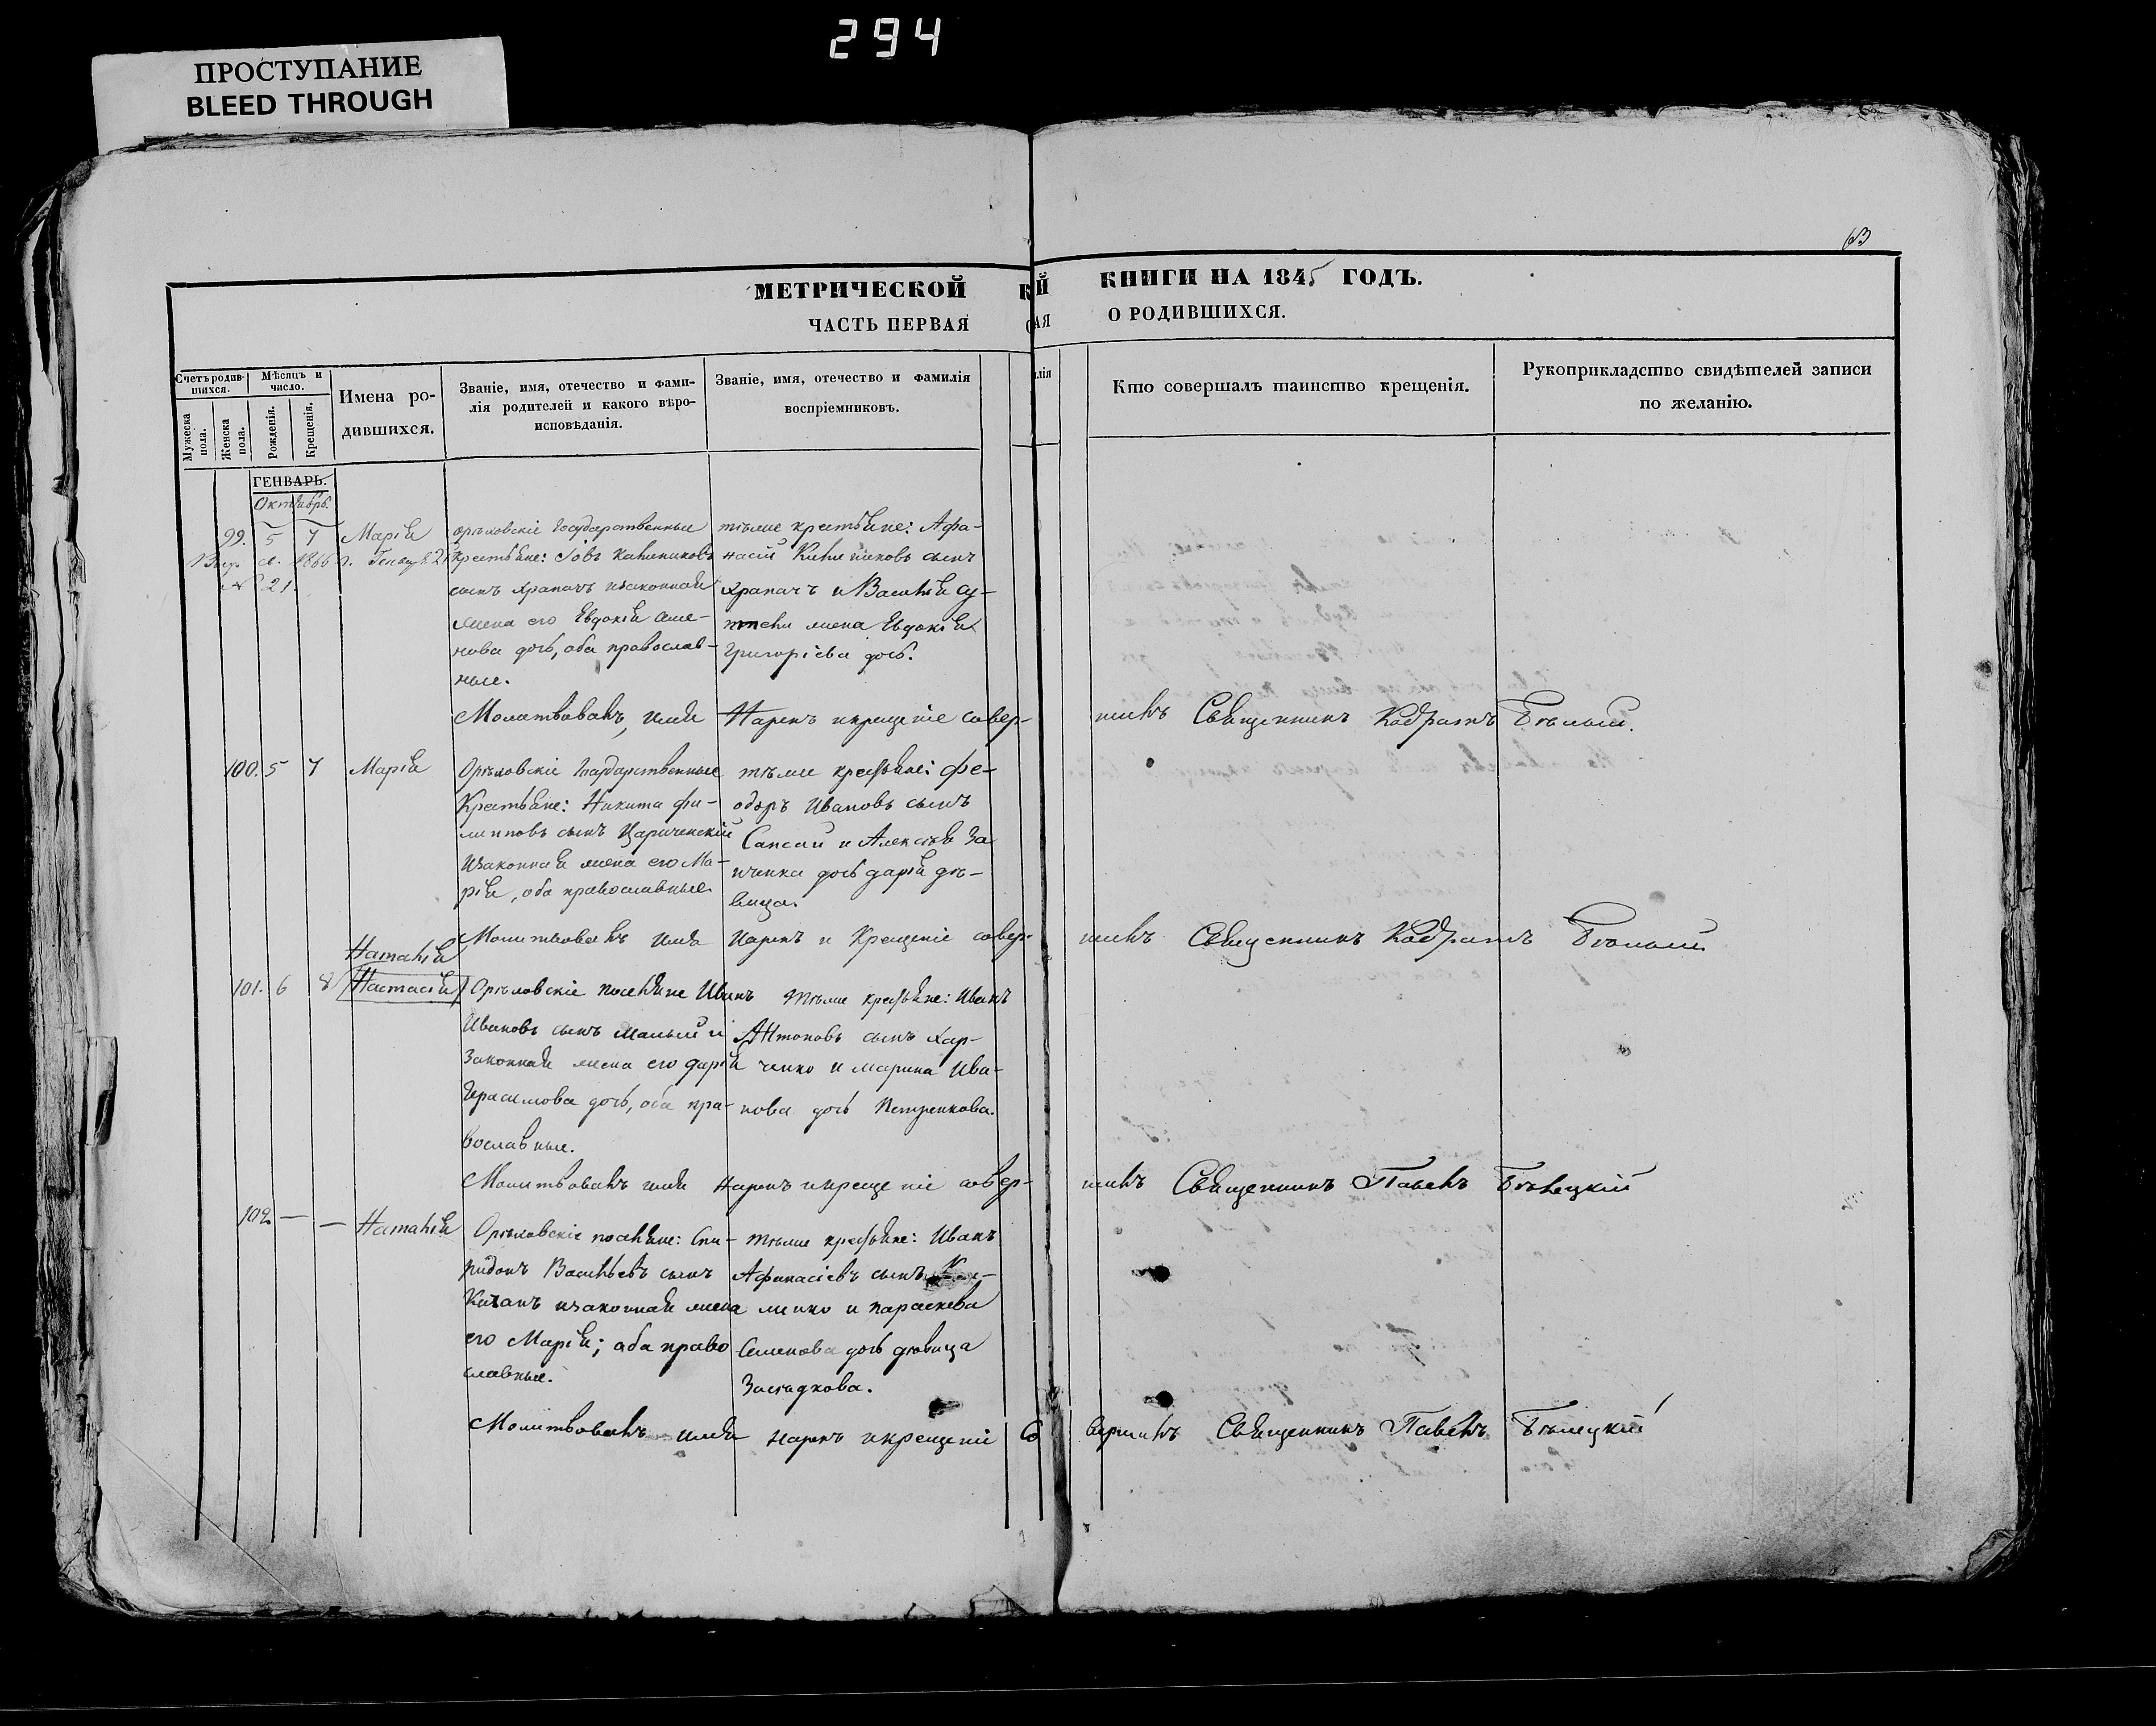 294
ПРОСТУПАНИЕ
BLEED THROUGH
МЕТРИЧЕСКОЙ КНИГИ НА 1845 ГОДЪ.
ЧАСТЬ ПЕРВАЯ О РОДИВШИХСЯ.
Счетъ родившихся.
Мужеска пола.
Женска пола.
Мѣсяцъ и число.
Рожденія.
Крещенія.
Имена родившихся.
Званіе, имя, отечество и фами-
лія родителей и какого вѣро-
исповѣданія.
Званіе, имя, отечество и фамилія
воспріемниковъ.
Кто совершалъ таинство крещенія.
Рукоприкладство свидѣтелей записи
по желанію.
ГЕНВАРЬ.
Октябрь.
99. 5 7 Марія
1866 г.
№ 21.
Орѣловскіе Государственные
Крестьяне: Іовъ
сынъ Храпачъ изаконная
жена его Евдокія Семе-
нова дочь, оба православ-
ные.
тѣже крестьяне: Афа-
насій сынъ
Храпачъ и
жена Евдокія
Григоріева дочь.
Молитвовалъ, имя Нарекъ икрещеніе совер-
шилъ Священникъ Кодратъ Бѣлый.
100. 5 7 Марія
Орѣловскіе Государственные
Крестьяне: Никита Фи-
липповъ сынъ Цариченскій
Изаконная жена его Ма-
рія, оба православные.
тѣже крестьяне: Фе-
одоръ Ивановъ сынъ
Сапсай и Алексѣя За
дочь дарія дѣ-
вица.
Молитвовалъ имя Нарекъ и Крещеніе совер-
шилъ Священникъ Кодратъ Бѣлый
Наталія
101. 6 8 Настасія
Орѣловскіе поселяне Иванъ
Ивановъ сынъ Малый и
Законная жена его дарія
Герасимова дочь, оба пра-
вославные.
тѣже крестьяне: Иванъ
Антоновъ сынъ Хар-
ченко и Марина Ива-
нова дочь Петренкова.
Молитвовалъ имя Нарекъ икрещеніе совер-
шилъ Священникъ Павелъ Бѣлецкій
102. — — Наталія
Орѣловскіе поселяне: Спи-
ридонъ Васильевъ сынъ
изаконная жена
его Марія; оба право
славные.
тѣже крестьяне: Иванъ
Афанасіевъ сынъ
и параскева
Семенова дочь дѣвица
Молитвовалъ имя нарекъ икрещеніе со
вершилъ Священникъ Павелъ Бѣлецкій